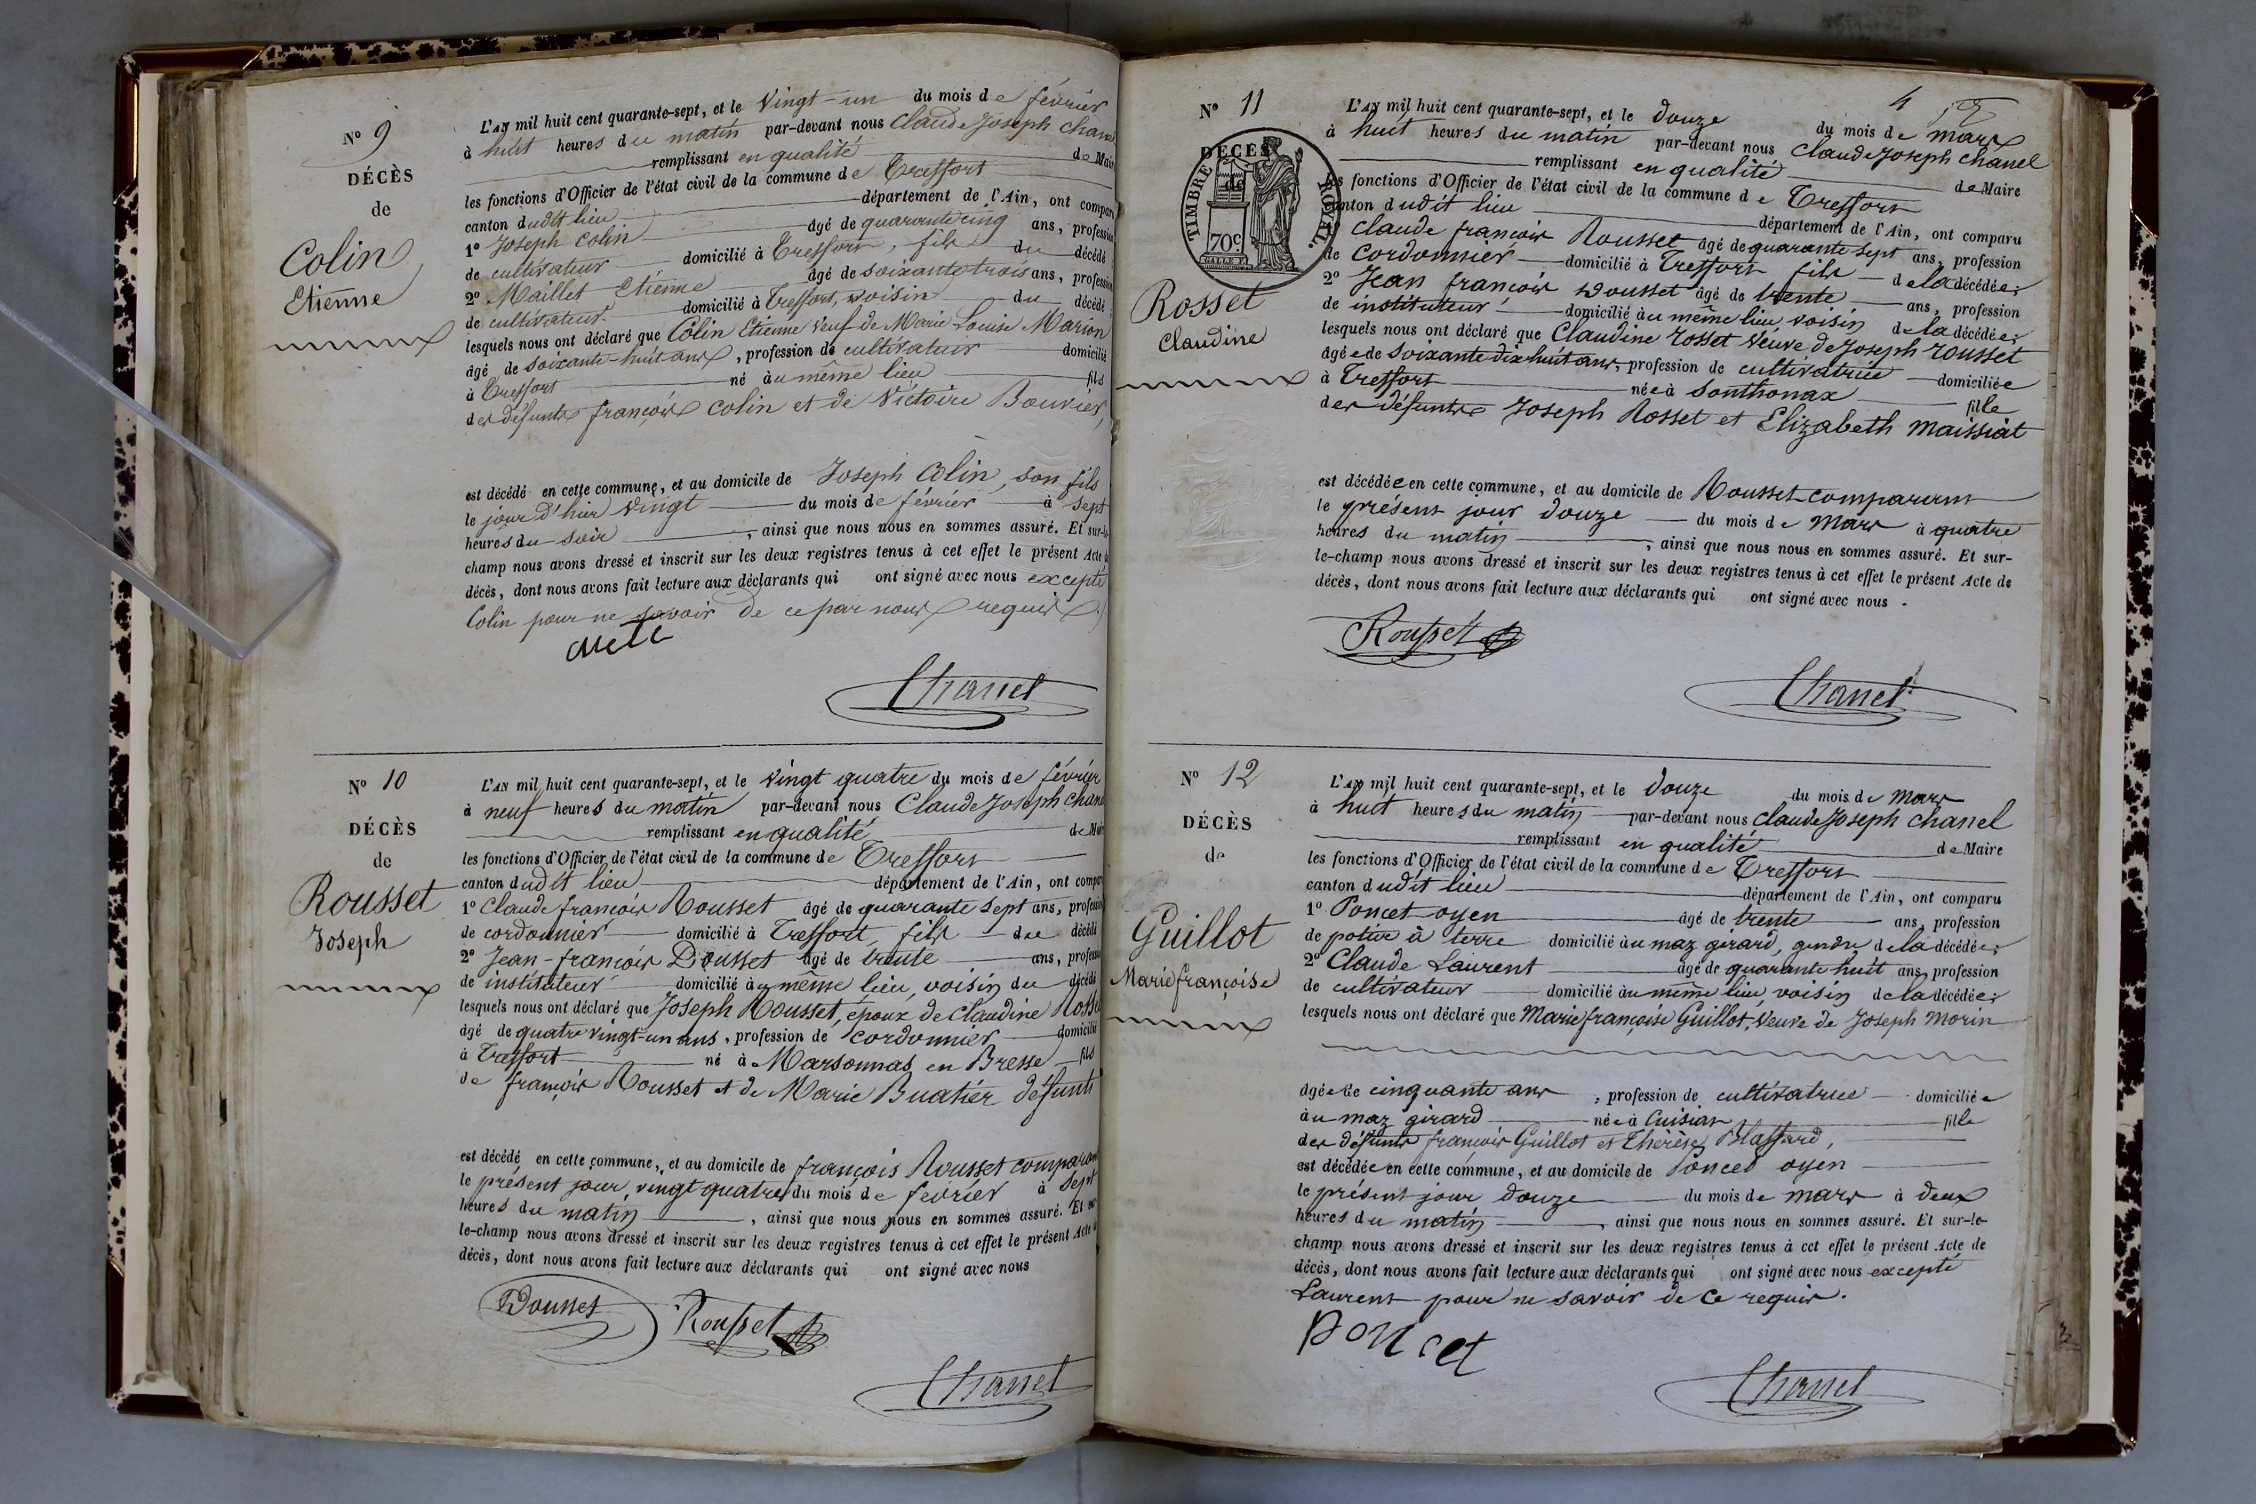 Nº 9
DÉCÈS
de
Colin
Etienne
L'AN mil huit cent quarante-sept, et le Vingt-un du mois de février
à huit heures du matin par-devant nous Claude Joseph Chanel
remplissant en qualité de Maire
les fonctions d'Officier de l'état civil de la commune de Treffort
canton dudit lieu département de l'Ain, ont comparu
1º Joseph Colin âgé de quarante cinq ans, profession
de cultivateur domicilié à Treffort, fils du décédé
2º Maillet Etienne âgé de soixante trois ans, profession
de cultivateur domicilié à Treffort, voisin du décédé
lesquels nous ont déclaré que Colin Etienne Veuf de Marie Louise Marion
âgé de soixante-huit ans, profession de cultivateur domicilié
à Treffort né au même lieu fils
des défunts françois Colin et de Victoire Bouvier,
est décédé en cette commune, et au domicile de Joseph Colin, son fils
le jour d'hier vingt du mois de février à sept
heures du soir, ainsi que nous nous en sommes assuré. Et sur-le-
champ nous avons dressé et inscrit sur les deux registres tenus à cet effet le présent Acte de
décès, dont nous avons fait lecture aux déclarants qui ont signé avec nous excepté
Colin pour ne savoir de ce par nous requis
Chanel
Nº 10
DÉCÈS
de
Rousset
Joseph
L'AN mil huit cent quarante-sept, et le Vingt quatre du mois de février
à neuf heures du matin par-devant nous Claude Joseph Chanel
remplissant en qualité de Maire
les fonctions d'Officier de l'état civil de la commune de Treffort
canton dudit lieu département de l'Ain, ont comparu
1º Claude françois Rousset âgé de quarante sept ans, profession
de cordonnier domicilié à Treffort, fils du décédé
2º Jean-françois Dousset âgé de trente ans, profession
de instituteur domicilié au même lieu, voisin du décédé
lesquels nous ont déclaré que Joseph Rousset, époux de Claudine Rosset
âgé de quatre vingt-un ans, profession de cordonnier domicilié
à Treffort né à Marsonnas en Bresse fils
de françois Rousset et de Marie Buatier défunts
est décédé en cette commune, et au domicile de françois Rousset comparant
le présent jour, vingt quatre du mois de février à sept
heures du matin, ainsi que nous nous en sommes assuré. Et sur-
le-champ nous avons dressé et inscrit sur les deux registres tenus à cet effet le présent Acte de
décès, dont nous avons fait lecture aux déclarants qui ont signé avec nous
Dousset Rousset
Chanel
4
Nº 11
DÉCÈS
de
TIMBRE ROYAL.
70c
Rosset
Claudine
L'AN mil huit cent quarante-sept, et le douze du mois de mars
à huit heures du matin par-devant nous Claude Joseph Chanel
remplissant en qualité de Maire
les fonctions d'Officier de l'état civil de la commune de Treffort
canton dudit lieu département de l'Ain, ont comparu
Claude françois Rousset âgé de quarante sept ans, profession
de cordonnier domicilié à Treffort fils de la décédée;
2º Jean françois Dousset âgé de trente ans, profession
de instituteur domicilié au même lieu, voisin de la décédée;
lesquels nous ont déclaré que Claudine Rosset Veuve de Joseph Rousset
âgée de soixante dix huit ans, profession de cultivatrice domiciliée
à Treffort née à Sonthonax fille
des défunts Joseph Rosset et Elizabeth Maissiat
est décédée en cette commune, et au domicile de Rousset comparant
le présent jour douze du mois de mars à quatre
heures du matin, ainsi que nous nous en sommes assuré. Et sur-
le-champ nous avons dressé et inscrit sur les deux registres tenus à cet effet le présent Acte de
décès, dont nous avons fait lecture aux déclarants qui ont signé avec nous.
Rousset
Chanel
Nº 12
DÉCÈS
de
Guillot
Marie françoise
L'AN mil huit cent quarante-sept, et le douze du mois de mars
à huit heures du matin par-devant nous Claude Joseph Chanel
remplissant en qualité de Maire
les fonctions d'Officier de l'état civil de la commune de Treffort
canton dudit lieu département de l'Ain, ont comparu
1º Poncet oyen âgé de trente ans, profession
de potier à terre domicilié au maz girard, gendre de la décédée;
2º Claude Laurent âgé de quarante huit ans, profession
de cultivateur domicilié au même lieu, voisin de la décédée;
lesquels nous ont déclaré que Marie françoise Guillot, Veuve de Joseph Morin
âgée de cinquante ans, profession de cultivatrice domiciliée
au maz girard née à Cuisiat fille
des défunts françois Guillot et Thérèse Blaffard,
est décédée en cette commune, et au domicile de Poncet oyen
le présent jour douze du mois de mars à deux
heures du matin, ainsi que nous nous en sommes assuré. Et sur-le-
champ nous avons dressé et inscrit sur les deux registres tenus à cet effet le présent Acte de
décès, dont nous avons fait lecture aux déclarants qui ont signé avec nous excepté
Laurent pour ne savoir de ce requis.
Poncet
Chanel